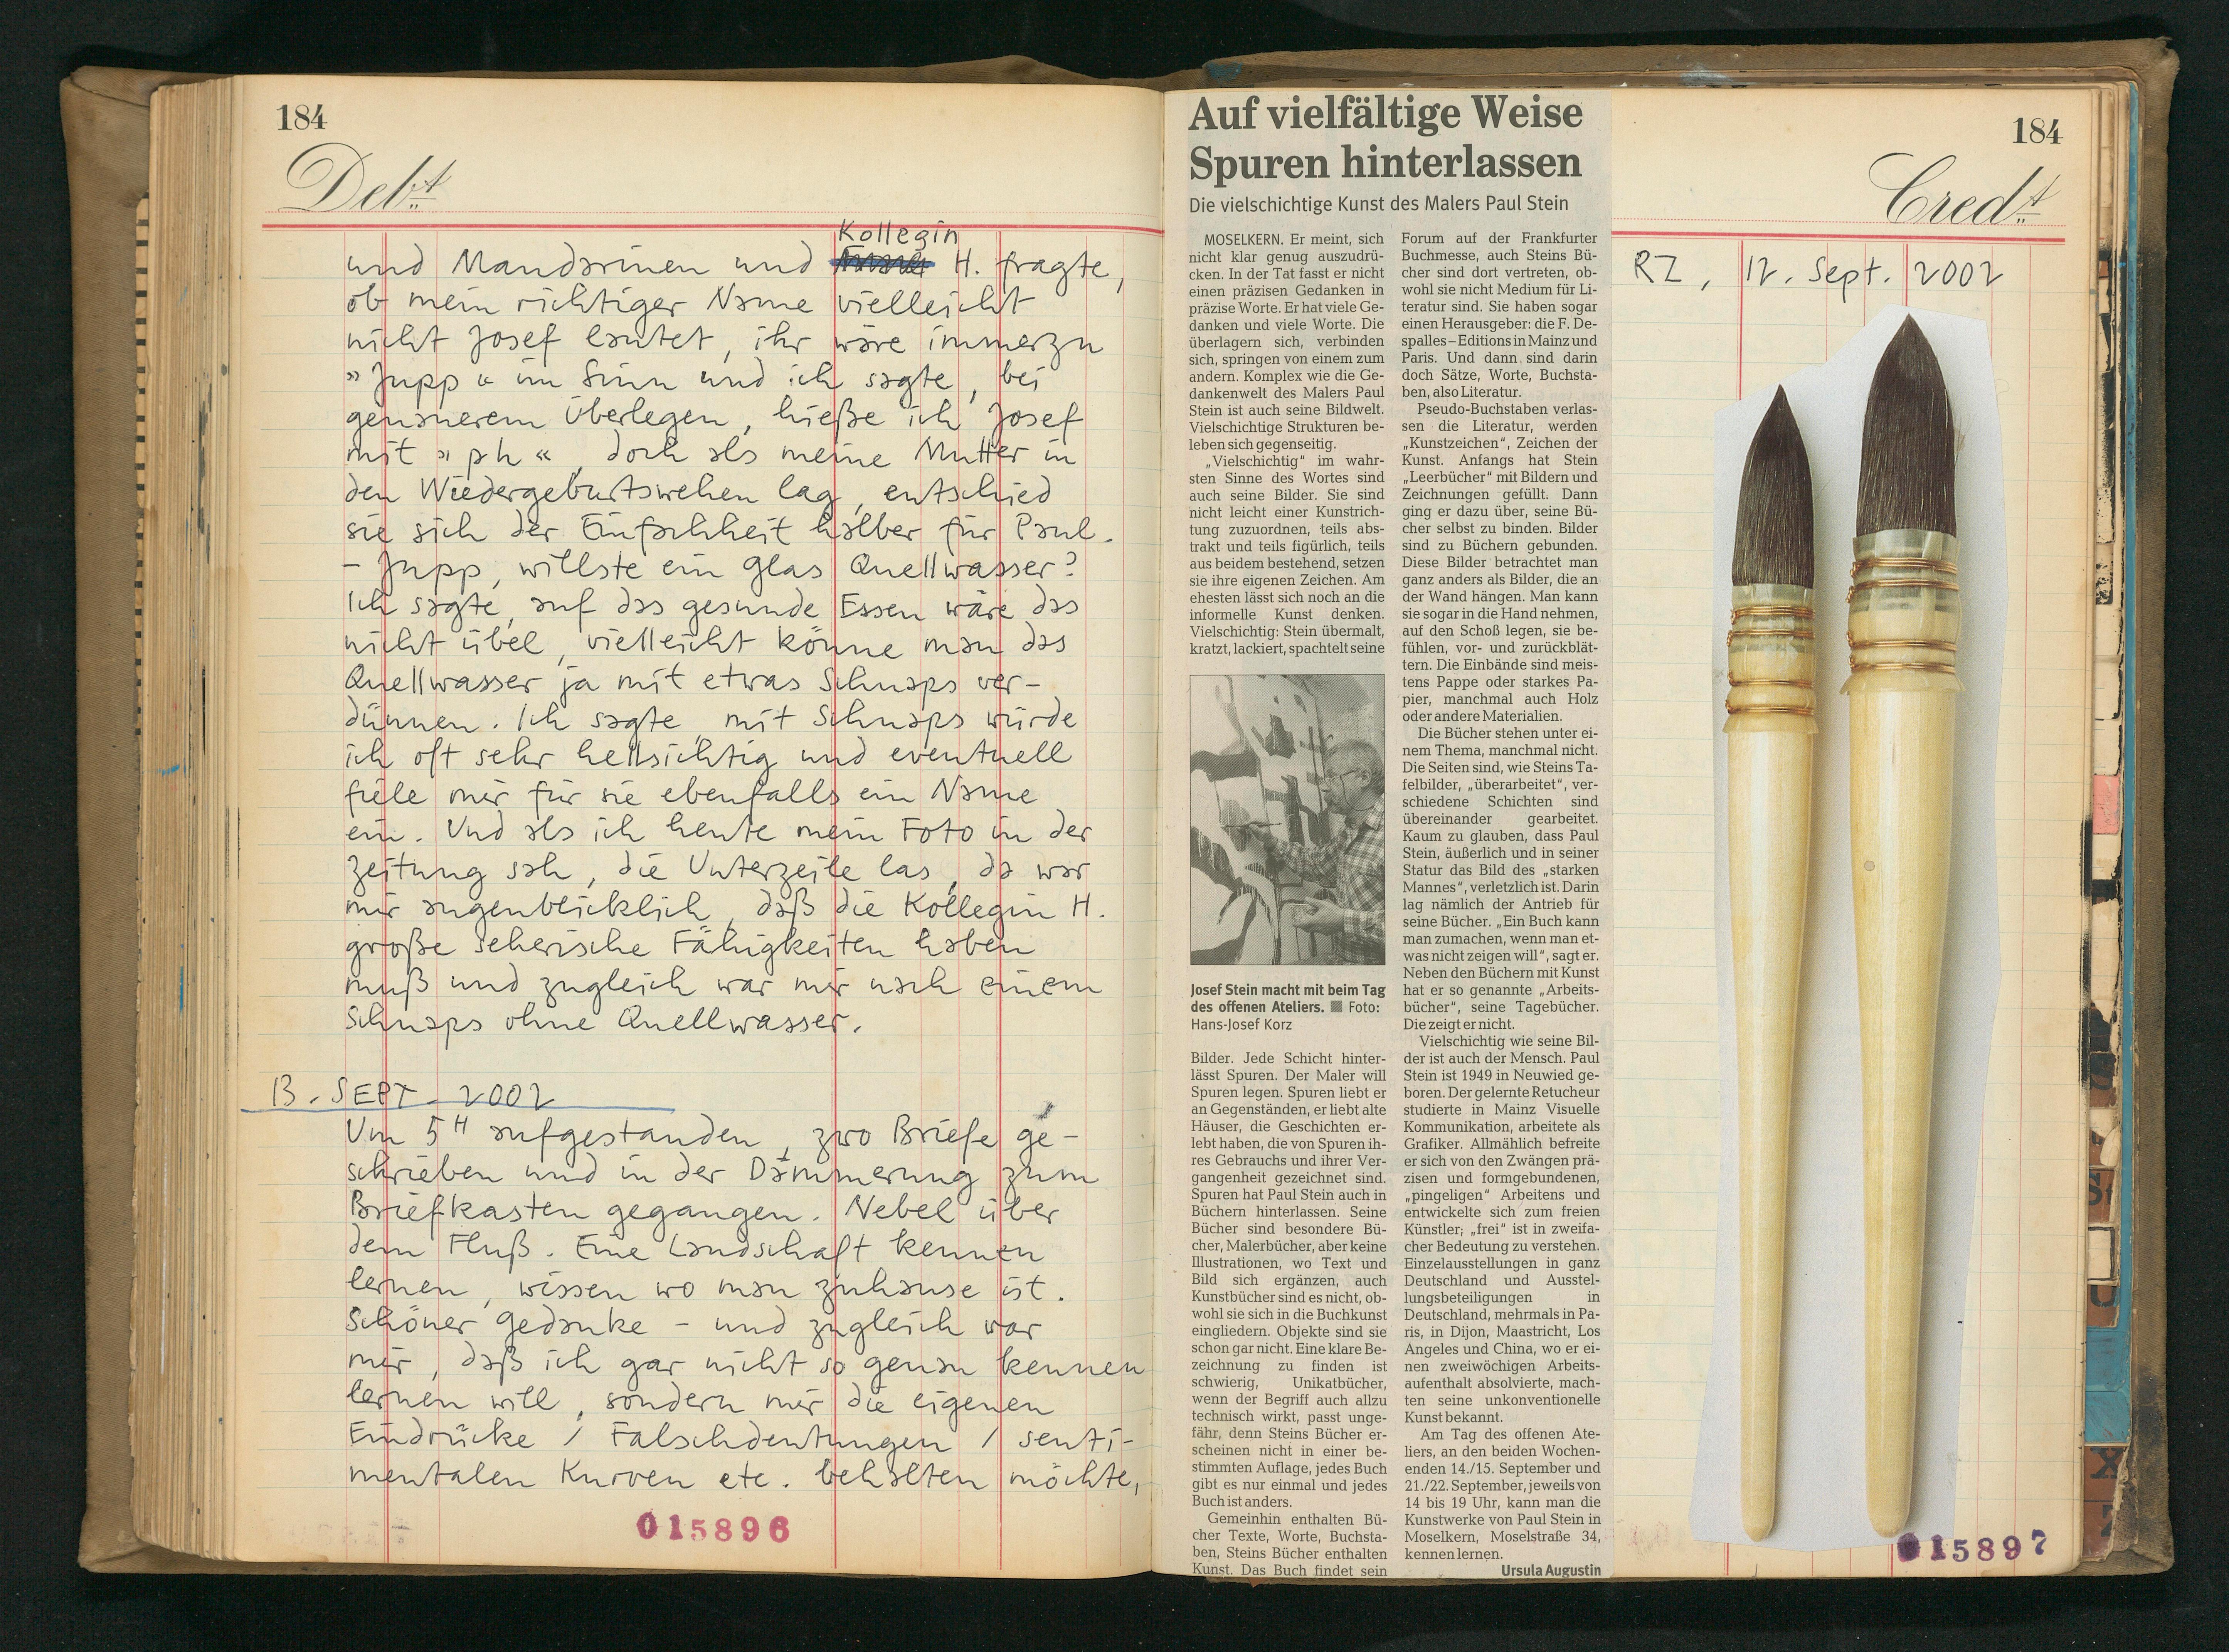 184
Debt
Kollegin
und Mandarinen und H. fragte,
ob mein richtiger Name vielleicht
nicht Josef lautet, ihr wäre immerzu
»Jupp« im Sinn und ich sagte, bei
genauerem Überlegen, hieße ich Josef
mit »ph«, doch als meine Mutter in
den Wiedergeburtswehen lag, entschied
sie sich der Einfachheit halber für Paul.
– Jupp, willste ein Glas Quellwasser?
Ich sagte, auf das gesunde Essen wäre das
nicht übel, vielleicht könne man das
Quellwasser ja mit etwas Schnaps ver-
dünnen. Ich sagte, mit Schnaps würde
ich oft sehr hellsichtig und eventuell
fiele mir für sie ebenfalls ein Name
ein. Und als ich heute mein Foto in der
Zeitung sah, die Unterzeile las, da war
mir augenblicklich, daß die Kollegin H.
große seherische Fähigkeiten haben
muß und zugleich war mir nach einem
Schnaps ohne Quellwasser.
13. SEPT. 2002
Um 5H aufgestanden, zwo Briefe ge-
schrieben und in der Dämmerung zum
Briefkasten gegangen. Nebel über
dem Fluß. Eine Landschaft kennen
lernen, wissen wo man zuhause ist.
Schöner Gedanke – und zugleich war
mir, daß ich gar nicht so genau kennen
lernen will, sondern mir die eigenen
Eindrücke / Falschdeutungen / senti-
mentalen Kurven etc. behalten möchte,
015896
Auf vielfältige Weise
Spuren hinterlassen
Die vielschichtige Kunst des Malers Paul Stein
MOSELKERN. Er meint, sich
nicht klar genug auszudrü-
cken. In der Tat fasst er nicht
einen präzisen Gedanken in
präzise Worte. Er hat viele Ge-
danken und viele Worte. Die
überlagern sich, verbinden
sich, springen von einem zum
andern. Komplex wie die Ge-
dankenwelt des Malers Paul
Stein ist auch seine Bildwelt.
Vielschichtige Strukturen be-
leben sich gegenseitig.
„Vielschichtig“ im wahr-
sten Sinne des Wortes sind
auch seine Bilder. Sie sind
nicht leicht einer Kunstrich-
tung zuzuordnen, teils abs-
trakt und teils figürlich, teils
aus beidem bestehend, setzen
sie ihre eigenen Zeichen. Am
ehesten lässt sich noch an die
informelle Kunst denken.
Vielschichtig: Stein übermalt,
kratzt, lackiert, spachtelt seine
Josef Stein macht mit beim Tag
des offenen Ateliers. ■ Foto:
Hans-Josef Korz
Bilder. Jede Schicht hinter-
lässt Spuren. Der Maler will
Spuren legen. Spuren liebt er
an Gegenständen, er liebt alte
Häuser, die Geschichten er-
lebt haben, die von Spuren ih-
res Gebrauchs und ihrer Ver-
gangenheit gezeichnet sind.
Spuren hat Paul Stein auch in
Büchern hinterlassen. Seine
Bücher sind besondere Bü-
cher, Malerbücher, aber keine
Illustrationen, wo Text und
Bild sich ergänzen, auch
Kunstbücher sind es nicht, ob-
wohl sie sich in die Buchkunst
eingliedern. Objekte sind sie
schon gar nicht. Eine klare Be-
zeichnung zu finden ist
schwierig, Unikatbücher,
wenn der Begriff auch allzu
technisch wirkt, passt unge-
fähr, denn Steins Bücher er-
scheinen nicht in einer be-
stimmten Auflage, jedes Buch
gibt es nur einmal und jedes
Buch ist anders.
Gemeinhin enthalten Bü-
cher Texte, Worte, Buchsta-
ben, Steins Bücher enthalten
Kunst. Das Buch findet sein
Forum auf der Frankfurter
Buchmesse, auch Steins Bü-
cher sind dort vertreten, ob-
wohl sie nicht Medium für Li-
teratur sind. Sie haben sogar
einen Herausgeber: die F. De-
spalles – Editions in Mainz und
Paris. Und dann sind darin
doch Sätze, Worte, Buchsta-
ben, also Literatur.
Pseudo-Buchstaben verlas-
sen die Literatur, werden
„Kunstzeichen“, Zeichen der
Kunst. Anfangs hat Stein
„Leerbücher“ mit Bildern und
Zeichnungen gefüllt. Dann
ging er dazu über, seine Bü-
cher selbst zu binden. Bilder
sind zu Büchern gebunden.
Diese Bilder betrachtet man
ganz anders als Bilder, die an
der Wand hängen. Man kann
sie sogar in die Hand nehmen,
auf den Schoß legen, sie be-
fühlen, vor- und zurückblät-
tern. Die Einbände sind meis-
tens Pappe oder starkes Pa-
pier, manchmal auch Holz
oder andere Materialien.
Die Bücher stehen unter ei-
nem Thema, manchmal nicht.
Die Seiten sind, wie Steins Ta-
felbilder, „überarbeitet“, ver-
schiedene Schichten sind
übereinander gearbeitet.
Kaum zu glauben, dass Paul
Stein, äußerlich und in seiner
Statur das Bild des „starken
Mannes“, verletzlich ist. Darin
lag nämlich der Antrieb für
seine Bücher. „Ein Buch kann
man zumachen, wenn man et-
was nicht zeigen will“, sagt er.
Neben den Büchern mit Kunst
hat er so genannte „Arbeits-
bücher“, seine Tagebücher.
Die zeigt er nicht.
Vielschichtig wie seine Bil-
der ist auch der Mensch. Paul
Stein ist 1949 in Neuwied ge-
boren. Der gelernte Retucheur
studierte in Mainz Visuelle
Kommunikation, arbeitete als
Grafiker. Allmählich befreite
er sich von den Zwängen prä-
zisen und formgebundenen,
„pingeligen“ Arbeitens und
entwickelte sich zum freien
Künstler; „frei“ ist in zweifa-
cher Bedeutung zu verstehen.
Einzelausstellungen in ganz
Deutschland und Ausstel-
lungsbeteiligungen in
Deutschland, mehrmals in Pa-
ris, in Dijon, Maastricht, Los
Angeles und China, wo er ei-
nen zweiwöchigen Arbeits-
aufenthalt absolvierte, mach-
ten seine unkonventionelle
Kunst bekannt.
Am Tag des offenen Ate-
liers, an den beiden Wochen-
enden 14./15. September und
21./22. September, jeweils von
14 bis 19 Uhr, kann man die
Kunstwerke von Paul Stein in
Moselkern, Moselstraße 34,
kennen lernen.
Ursula Augustin
184
Credt
RZ, 12. Sept. 2002
015897